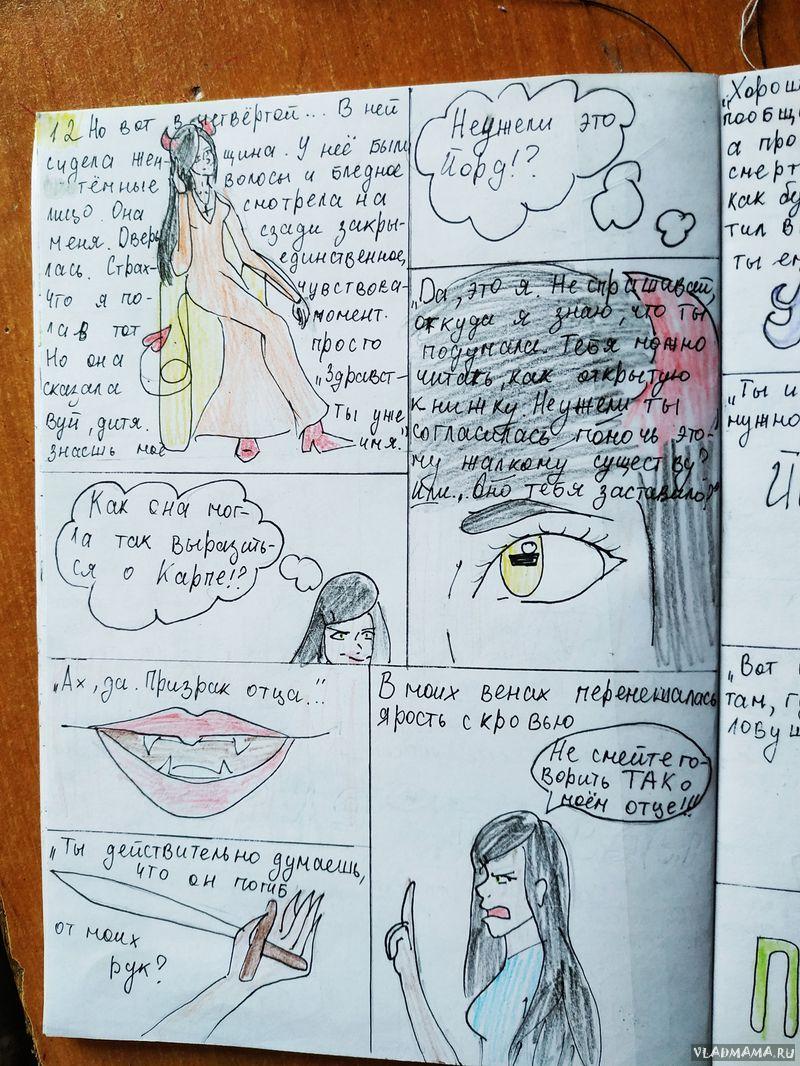 12 Но вот в четвёртой... В ней
сидела женщина. У неё были
тёмные волосы и бледное
лицо. Она смотрела на
меня. Дверь сзади закры-
лась. Страх- единственное,
что я по- чувствовала
ла в тот момент.
Но она просто
сказала „Здравст-
вуй, дитя. Ты уже
знаешь моё имя."
Неужели это
Йорд!?
„Да, это я. Не спрашивай,
откуда я знаю, что ты
подумала. Тебя можно
читать, как открытую
книжку. Неужели ты
согласилась помочь это-
му жалкому существу?
Или.. Оно тебя заставило?"
Как она мог-
ла так выразить-
ся о Карпе!?
„Ах, да. Призрак отца.."
В моих венах перемешалась
ярость с кровью
Не смейте го-
ворить ТАК о
моём отце!!!
„Ты действительно думаешь,
что он погиб
от моих
рук?
„Хорош
пообщ
а про
смерт
как бу
тил в
ты ем
„Ты и
нужно
Й
„Вот
там, г
ловуш
П
VLADMAMA.RU